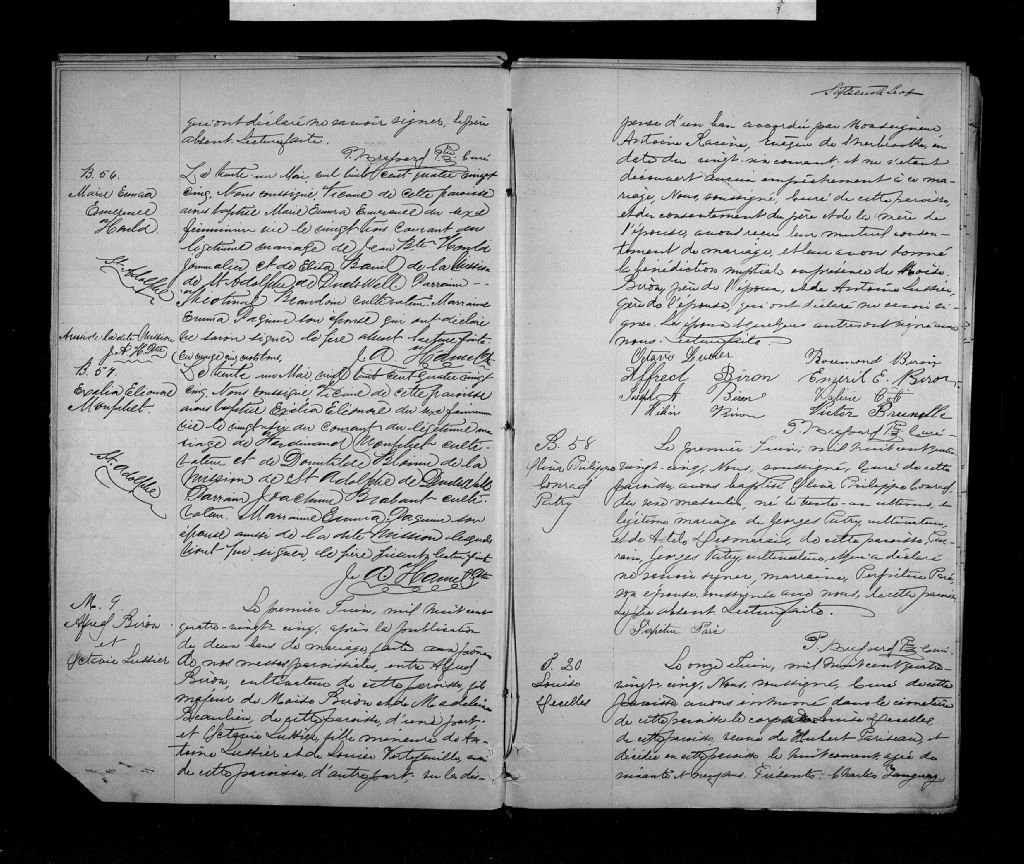 qui ont déclaré ne savoir signer, le père
absent. Lecture faite.
Ptre Curé
B. 56.
Marie Emma
Emérence
Hould
St. Adolphe
Le trente un Mai, mil huit cent quatre vingt
cinq, Nous soussigné, Vicaire de cette paroisse
avons baptisé Marie Emma Emérance du sexe
féminin née le vingt courant du
légitime mariage de Jean Bte Hould
Journalier et de Eliza de la Mission
de St Adolphe de Dudswell Parrain
Théotime Beaudoin cultivateur. Marraine
Emma Paquin son épouse qui ont déclaré
ne savoir signer le père absent lecture faite
J. A. Hamel Ptre
aussi de la dite Mission
J. A. H. Ptre
B. 57.
Exélia Eléonore
Monphet
St Adolphe
Le trente un Mai, mil huit cent quatre vingt
cinq, Nous soussigné Vicaire de cette paroisse
avons baptisé Exélia Eléonore du sexe féminin
née le vingt du courant du légitime ma-
riage de Ferdinand Monphet culti-
vateur et de Domitilde de la
Mission de St Adolphe de Dudswell
Parrain Joachim Brabant culti-
vateur. Marraine Emma Paquin son
épouse aussi de la dite Mission lesquels
n'ont pu signer, le père présent. Lecture faite
J. A. Hamel Ptre
M. 9
Alfred Biron
et
Octavie Lussier
Le premier Juin, mil huit cent
quatre-vingt cinq, après la publication
de deux bans de mariage faite aux prônes
de nos messes paroissiales, entre Alfred
Biron, cultivateur de cette paroisse, fils
majeur de Moïse Biron et de Madeleine
Beaulieu, de cette paroisse, d'une part
et Octavie Lussier fille mineure de An-
toine Lussier et de Louise Vertefeuille, aussi
de cette paroisse, d'autre part. vu la dis-
pense d'un ban accordée par Monseigneur
Antoine Racine, Evêque de Sherbrooke, en
date du vingt courant, et ne s'étant
découvert aucun empêchement à ce ma-
riage, Nous, soussigné, Curé de cette paroisse,
et du consentement du père et de la mère de
l'épouse, avons reçu leur mutuel consen-
tement de mariage, et leur avons donné
la bénédiction nuptiale en présence de Moïse
Biron, père de l'époux, et de Antoine Lussier,
père de l'épouse, qui ont déclaré ne savoir si-
gner. L'époux et quelques autres ont signé avec
nous. Lecture faite.
Octavie Lussier Rosemond Biron
Alfred Biron Eméril E. Biron
Joseph A Biron Valérie Coté
Biron Victor Brunelle
Ptre Curé
B. 58
Philippe
Conrad
Patry
Le premier Juin, mil huit cent quatre
vingt-cinq, Nous, soussigné, Curé de cette
paroisse, avons baptisé Philippe Conrad,
du sexe masculin, né le trente-un ultimo, du
légitime mariage de Georges Patry, cultivateur,
et de Desmarais, de cette paroisse, Par-
rain, Georges Patry, cultivateur, et qui a déclaré
ne savoir signer, marraine, Perpétue Paré
son épouse, soussignée avec nous, de cette paroisse,
le père absent. Lecture faite.
Perpétue Paré
Ptre Curé
S. 20
Louise
Lacelles
Le onze Juin, mil huit cent quatre
vingt-cinq, Nous, soussigné, Curé de cette
paroisse avons inhumé dans le cimetière
de cette paroisse le corps de Louise Lacelles,
de cette paroisse, veuve de Hubert Pariseau, et
décédée en cette paroisse le huit courant, agée de
soixante et ans. Présents: Charles Tanguay